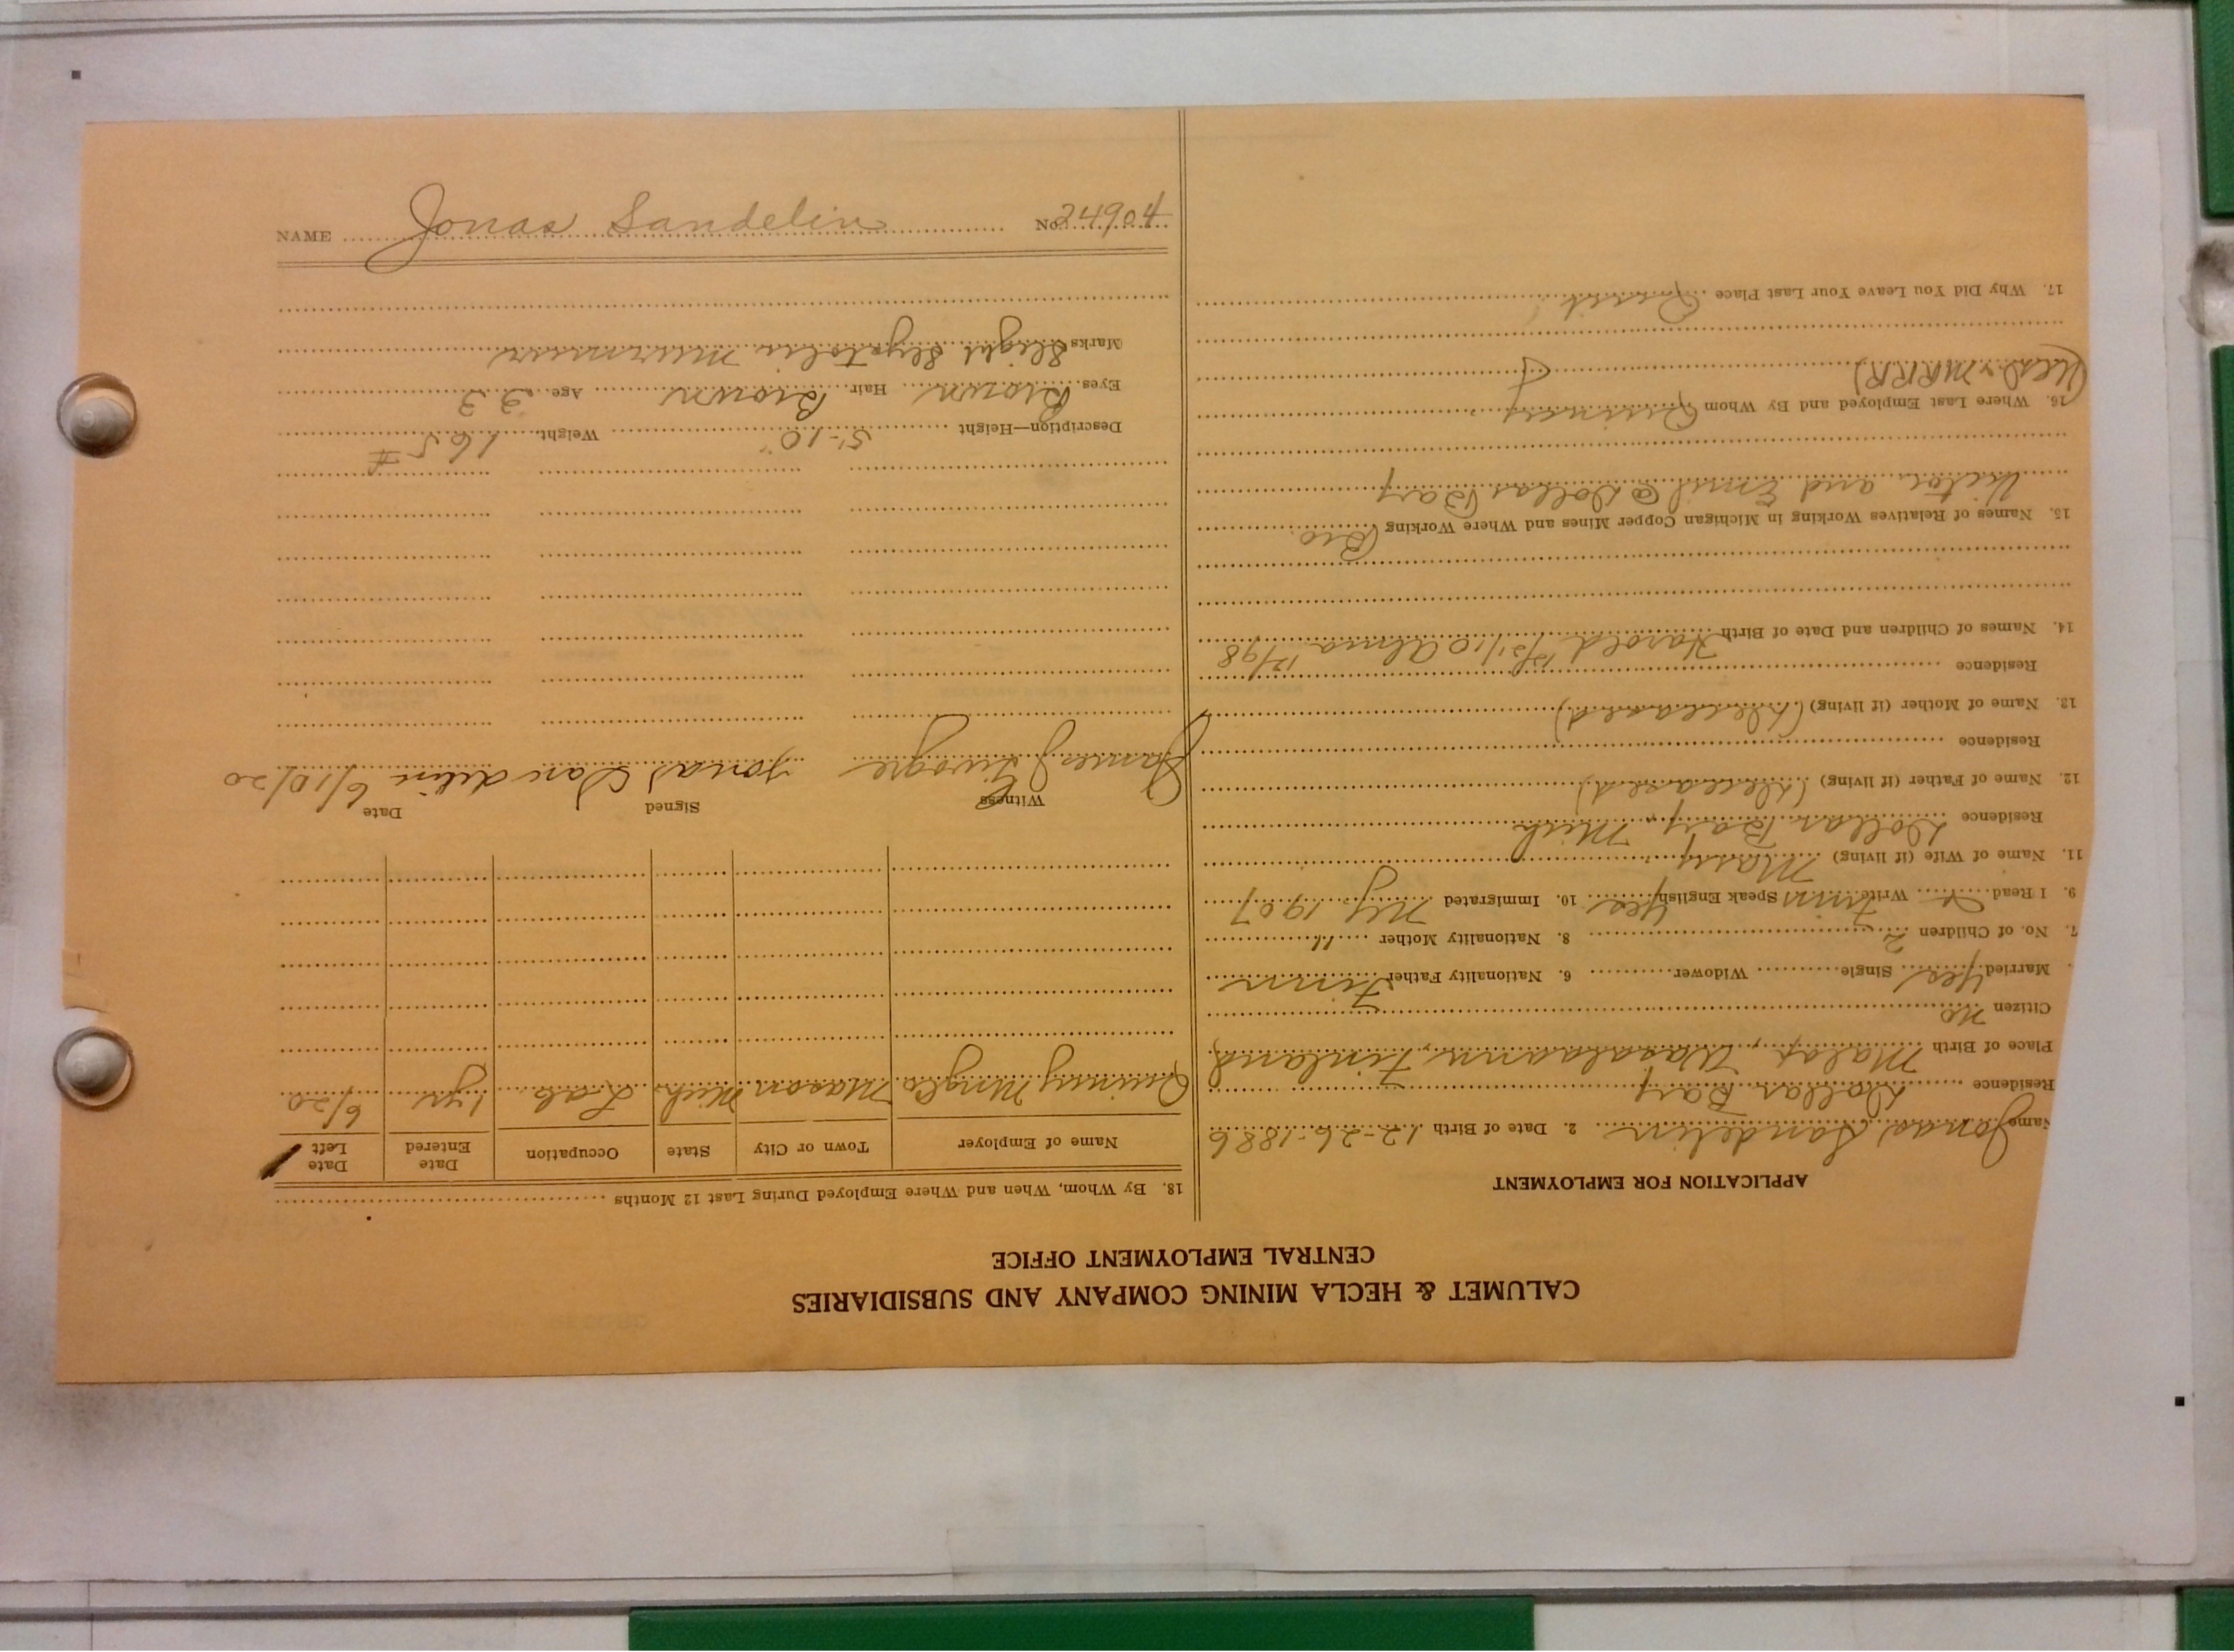 NAME Jonas Sandelin No. 24904
CALUMET & HECLA MINING COMPANY AND SUBSIDIARIES
CENTRAL EMPLOYMENT OFFICE
APPLICATION FOR EMPLOYMENT
Name Jonas Sandelin 2. Date of Birth 12-26-1886
Residence Dollar Bay
Place of Birth Malax, Wasalaann, Finland
Citizen No
Married Yes Single Widower 6. Nationality Father Finn
7. No. of Children 2 8. Nationality Mother "
9. I Read Write Finn Speak English Yes 10. Immigrated NY 1907
11. Name of Wife (if living) Mary
Residence Dollar Bay, Mich
12. Name of Father (if living) (Deceased)
Residence
13. Name of Mother (if living) (Deceased)
Residence
14. Names of Children and Date of Birth Harold 12/21/10 Alma 12/98
15. Names of Relatives Working in Michigan Copper Mines and Where Working Bro.
Victor and Emil @ Dollar Bay
16. Where Last Employed and By Whom Quincy
17. Why Did You Leave Your Last Place Quit
18. By Whom, When and Where Employed During Last 12 Months
Name of Employer Town or City State Occupation Date Entered Date Left
Quincy Mng Co Mason Mich Lab. 1 yr 6/20
Witness Signed Date
James J Jonas Sandelin 6/10/20
Description—Height 5-10" Weight 165 #
Eyes Brown Hair Brown Age 33
Marks Slight Systolic Murmur